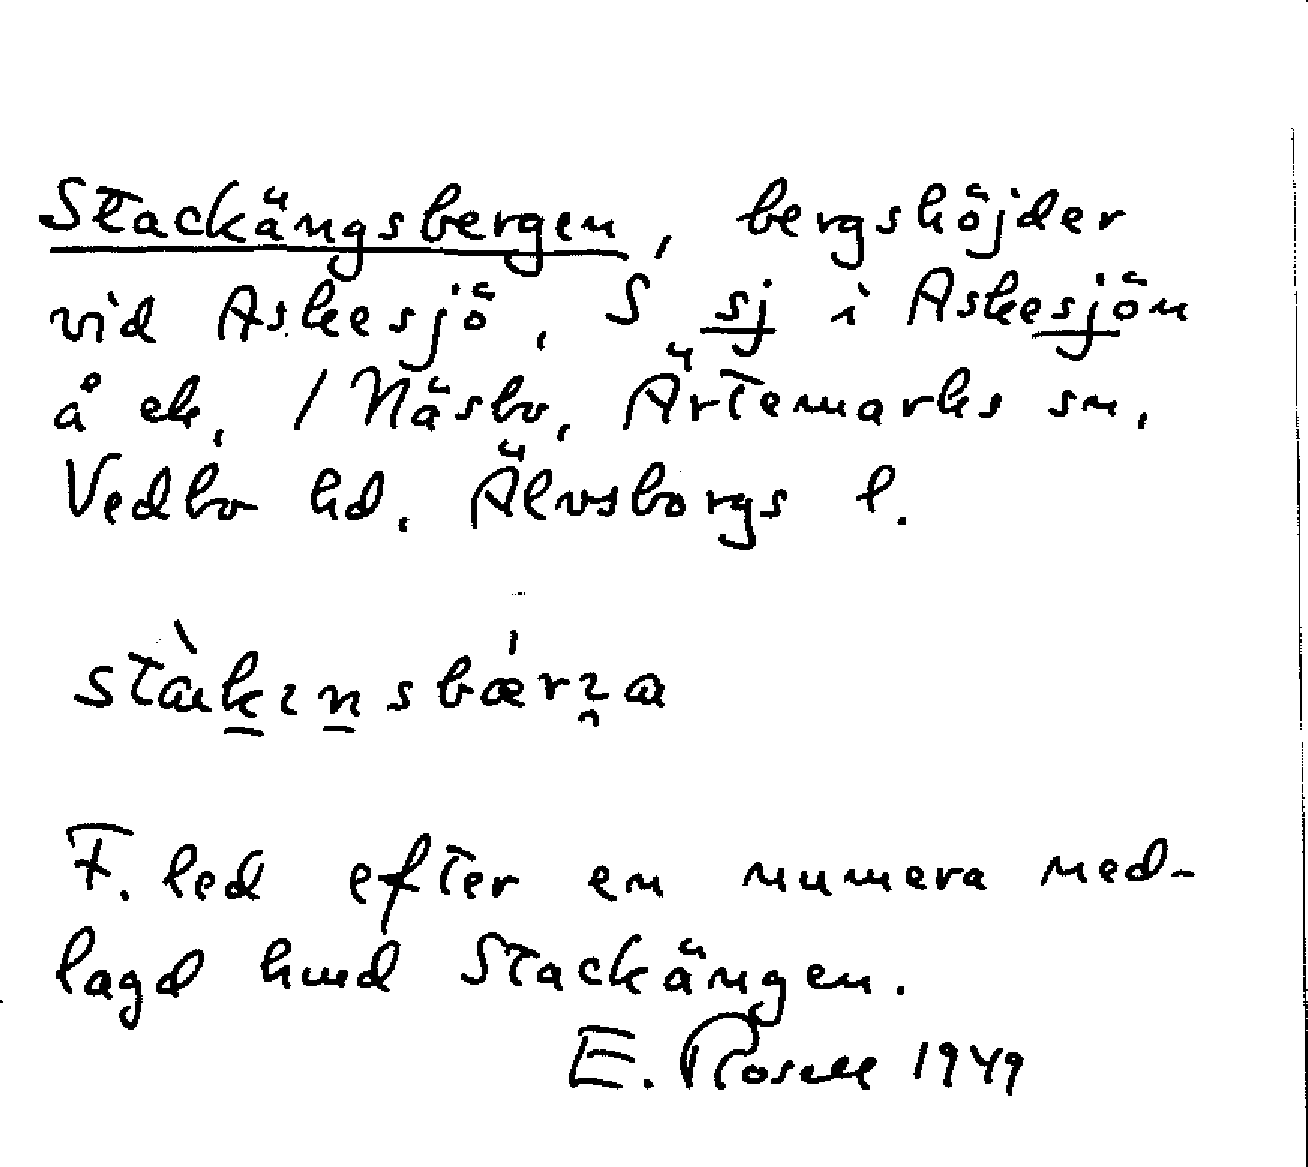 Stackängsbergen, bergshöjder
vid Askesjö, S sj i Askesjön
å ek. / Näsbo, Ärtemarks sn,
Vedbo hd, Älvsborgs l.
F. led efter en numera ned-
lagd hmd Stackängen.
E. Rosell 1949